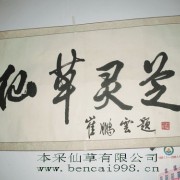 仙草灵芝
崔鹏云题
本采仙草有限公司
www.bencai998.cn